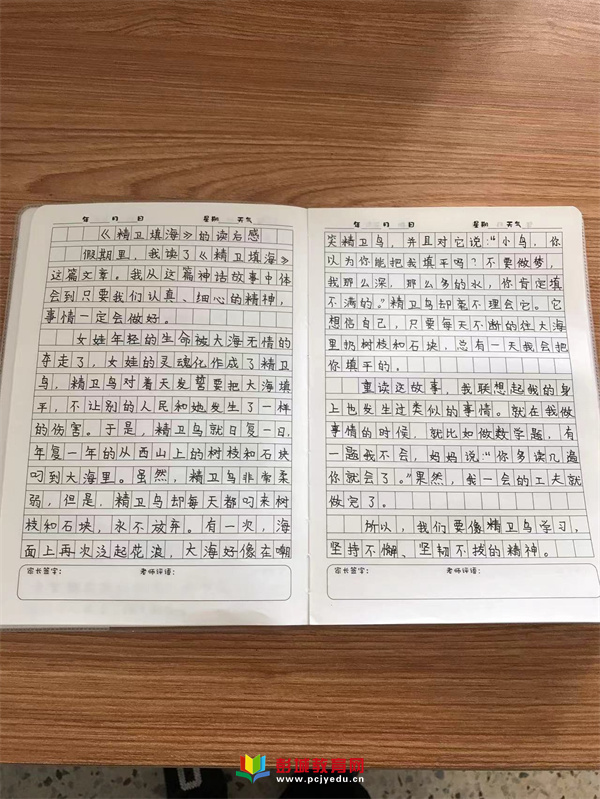 年 月 日 星期 天气
《精卫填海》的读后感
假期里，我读了《精卫填海》
这篇文章。我从这篇神话故事中体
会到只要我们认真、细心的精神，
事情一定会做好。
女娃年轻的生命被大海无情的
夺走了，女娃的灵魂化作成了精卫
鸟，精卫鸟对着天发誓要把大海填
平，不让别的人民和她发生了一样
的伤害。于是，精卫鸟就日复一日，
年复一年的从西山上的树枝和石块
叼到大海里。虽然，精卫鸟非常柔
弱，但是，精卫鸟却每天都叼来树
枝和石块，永不放弃。有一次，海
面上再次这起花浪，大海好像在嘲
家长签字： 老师评语：
年 月 日 星期 天气
笑精卫鸟，并且对它说：“小鸟，你
以为你能把我填平吗？不要做梦，
我那么深，那么多的水，你肯定填
不满的。”精卫鸟却毫不理会它。它
想信自己，只要每天不断的往大海
里扔树枝和石块，总有一天我会把
你填平的。
重读这故事，我联想起我的身
上也发生过类似的事情。就在我做
事情的时候，就比如做数学题，有
一题我不会，妈妈说：“你多读几遍
你就会了。”果然，我一会的工夫就
做完了。
所以，我们要像精卫鸟学习，
坚持不懈、坚韧不拔的精神。
家长签字： 老师评语：
彭城教育网
www.pcjyedu.cn